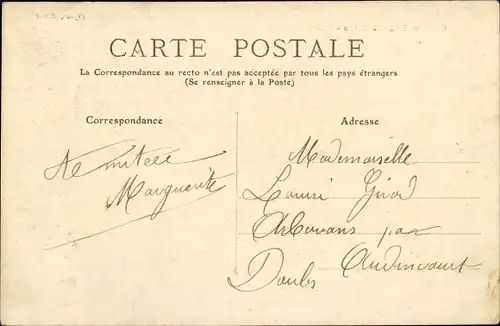 CARTE POSTALE
La Correspondance au recto n'est pas acceptée par tous les pays étrangers
(Se renseigner à la Poste)
Correspondance
Adresse
Marguerite
Mademoiselle
Louise Girod
Arbouans par
Audincourt
Doubs